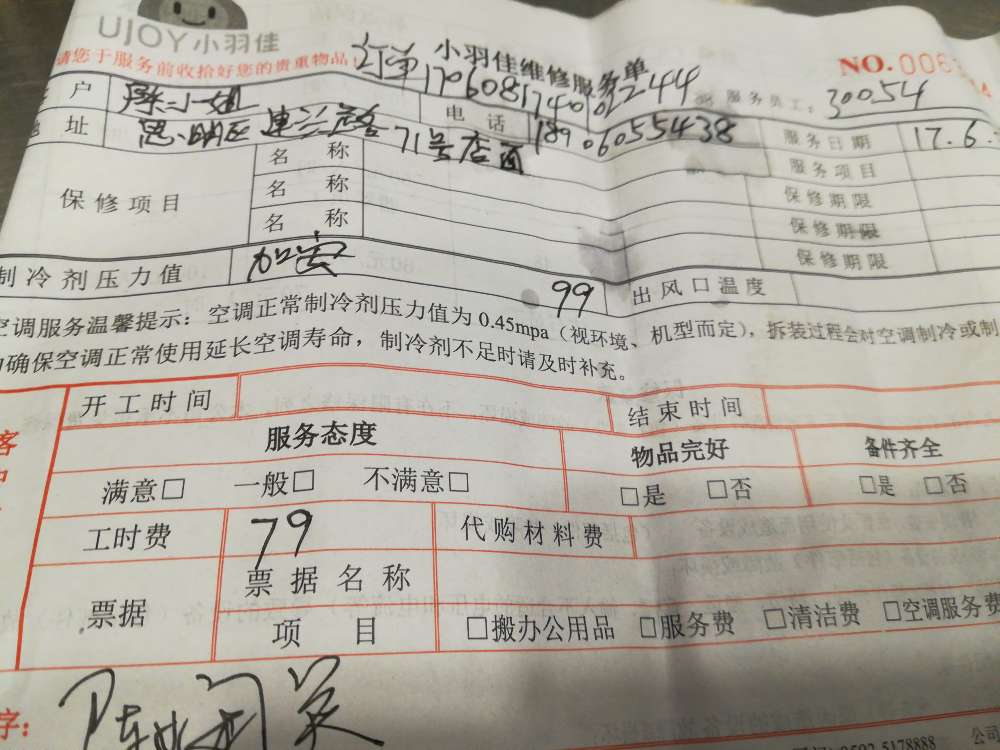 UJOY小羽佳
小羽佳维修服务单
请您于服务前收拾好您的贵重物品
订单
NO.006
服务员工: 30054
户 小姐 电话 18906055438 服务日期 17.6.
地址 思明区 71号店面 服务项目
保修项目 名称 保修期限
名称 保修期限
名称 保修期限
制冷剂压力值 加 99 出风口温度
空调服务温馨提示：空调正常制冷剂压力值为0.45mpa（视环境、机型而定），拆装过程会对空调制冷或制
确保空调正常使用延长空调寿命，制冷剂不足时请及时补充。
开工时间 结束时间
服务态度 物品完好 备件齐全
满意□ 一般□ 不满意□ □是 □否 □是 □否
工时费 79 代购材料费
票据 票据名称
项目 □搬办公用品 □服务费 □清洁费 □空调服务费
字：
5178888 公司